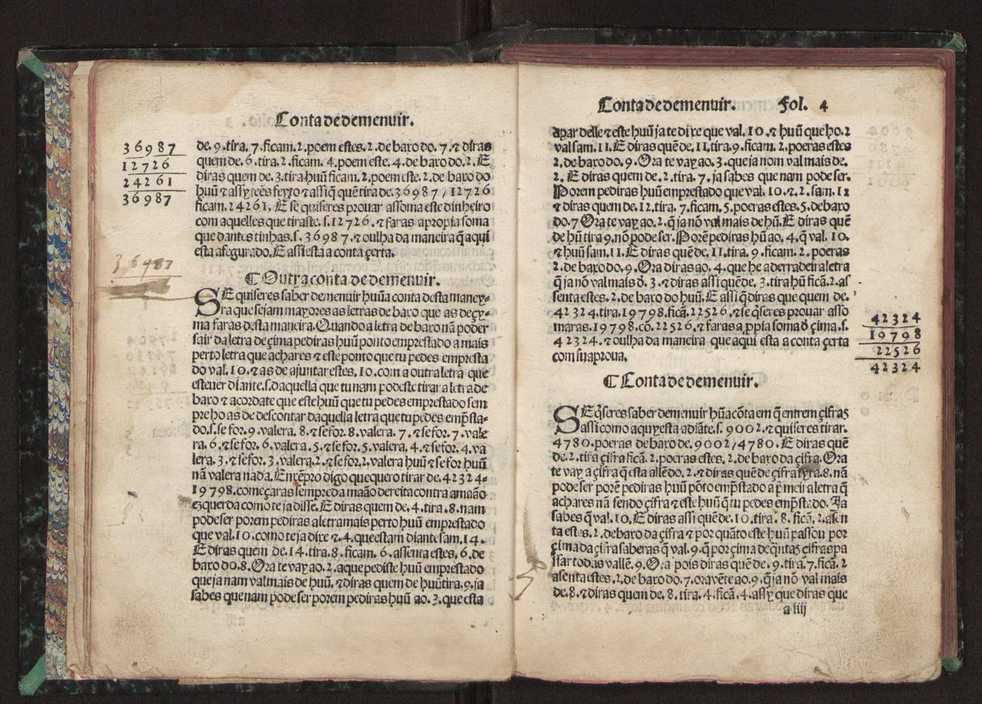 Conta de demenuir.
36987
12726
24261
36987
de.9.tira.7.ficam.2.poem estes.2.de baro do.7.⁊ diras
quem de.6.tira.2.ficam.4.poem este.4.de baxo do.2.E
diras quem de.3.tira huũ ficam.2.poem este.2.de baxo do
huũ ⁊ assy tẽes feyto ⁊ assi q̃ quẽ tira de.36987/12726
ficam.24261.E se quiseres prouar assoma este dinheiro
com aquelles que tiraste.s.12726.⁊ faras a propia soma
que dantes tinhas.s.36987.⁊ oulha da maneira q̃ aqui
esta afegurado.E assi esta a conta çerta.
36987
¶ Outra conta de demenuir.
SE quiseres saber demenuir huũa conta desta maney-
ra que sejam mayores as letras de baxo que as deçy-
ma faras desta maneira.Quando a letra de baxo nã poder
sair da letra de çima pediras huũ ponto emprestado a mais
perto letra que achares ⁊ este ponto que tu pedes empresta
do val.10.⁊ as de ajuntar estes.10.com a outra letra que
esteuer diante.s.daquella que tu nam podeste tirar a letra de
baxo ⁊ acordate que este huũ que tu pedes emprestado sem
pre ho as de descontar daquella letra que tu pedes emp̃sta-
do.s.se for.9.valera.8.⁊ se for.8.valera.7.⁊ se for.7.vale
ra.6.⁊ se for.6.valera.5.⁊ se for.5.valera.4.⁊ se for.4.va
lera.3.⁊ se for.3.valera.2.⁊ se for.2.valera huũ ⁊ se for huũ
nã valera nada.Enxẽpro digo que quero tirar de.42324-
19798.começaras sempre da maão dereita contra a maão
ezquerda como te ja disse.E diras quem de.4.tira.8.nam
pode ser porem pediras a letra mais perto huũ emprestado
que val.10.como te ja dixe ⁊ 4.que estam diante sam.14.
E diras quem de.14.tira.8.ficam.6.assenta estes.6.de
baxo do.8.Ora te vay ao.2.aque pediste huũ emprestado
que ja nam val mais de huũ.⁊ diras quem de huũ tira.9.ja
sabes que nam pode ser porem pediras huũ ao.3.que esta
Conta de demenuir. Fol. 4
apar delle ⁊ este huũ ja te dixe que val.10.⁊ huũ que ho.2
val sam.11.E diras quẽ de.11.tira.9.ficam.2.poeras estes
2.de baxo do.9.Ora te vay ao.3.que ja nom val mais de.
2.E diras quem de.2.tira.7.ja sabes que nam pode ser.
Porem pediras huũ emprestado que val.10.⁊.2.sam.12
⁊ diras quem de.12.tira.7.ficam.5.poeras estes.5.debaxo
do.7 Ora te vay ao.2.q̃ ja nõ val mais de hũ.E diras quẽ
de hũ tira 9.nõ pode ser.Porẽ pediras hũ ao.4.q̃ val.10.
⁊ huũ sam.11.E diras quẽ de.11.tira.9.ficam.2.poeras.
2.de baxo do.9.Ora diras ao.4.que he a derradeira letra
q̃ ja nõ val mais đ.3.⁊ diras assi quẽ de.3.tira hũ ficã.2.as
senta estes.2.de baxo do huũ.E assi q̃ diras que quem de.
42324.tira.19798.ficã.22526.⁊ se q̃seres prouar asso
maras.19798.cõ.22526.⁊ faras a ꝓpia soma đ çima.s.
42324.⁊ oulha da maneira que aqui esta a conta çerta
com sua proua.
42324
19798
22526
42324
¶ Conta de demenuir.
SE q̃seres saber demenuir hũa cõta em q̃ entrem çifras
assi como aqui esta adiãte.s.9002.⁊ quiseres tirar.
4780.poeras de baxo de.9002/4780.E diras quẽ
de.2.tira çifra ficã.2.poeras estes.2.de baxo da çifra.Ora
te vay a çifra q̃ esta allẽ do.2.⁊ diras quẽ de çifra tira.8.nã
pode ser porẽ pediras huũ põto emp̃stado a p̃meira letra q̃
achares nã sendo çifra ⁊ este huũ q̃ tu pedes emp̃stado.Ja
sabes q̃ val.10.E diras assi quẽ de.10.tira.8.ficã.2.assen
ta estes.2.de baxo da çifra ⁊ por quãto este huũ passou por
çima da çifra saberas q̃ val.9.q̃ por çima de q̃ntas çifras pa
ssar todas vallẽ.9.Ora pois diras quẽ de.9.tira.7.ficã.2
assenta estes.2.de baxo do.7.ora vẽte ao.9.q̃ ja nõ val mais
de.8.⁊ diras quem de.8.tira.4.ficã.4.assy que diras que
a iiij